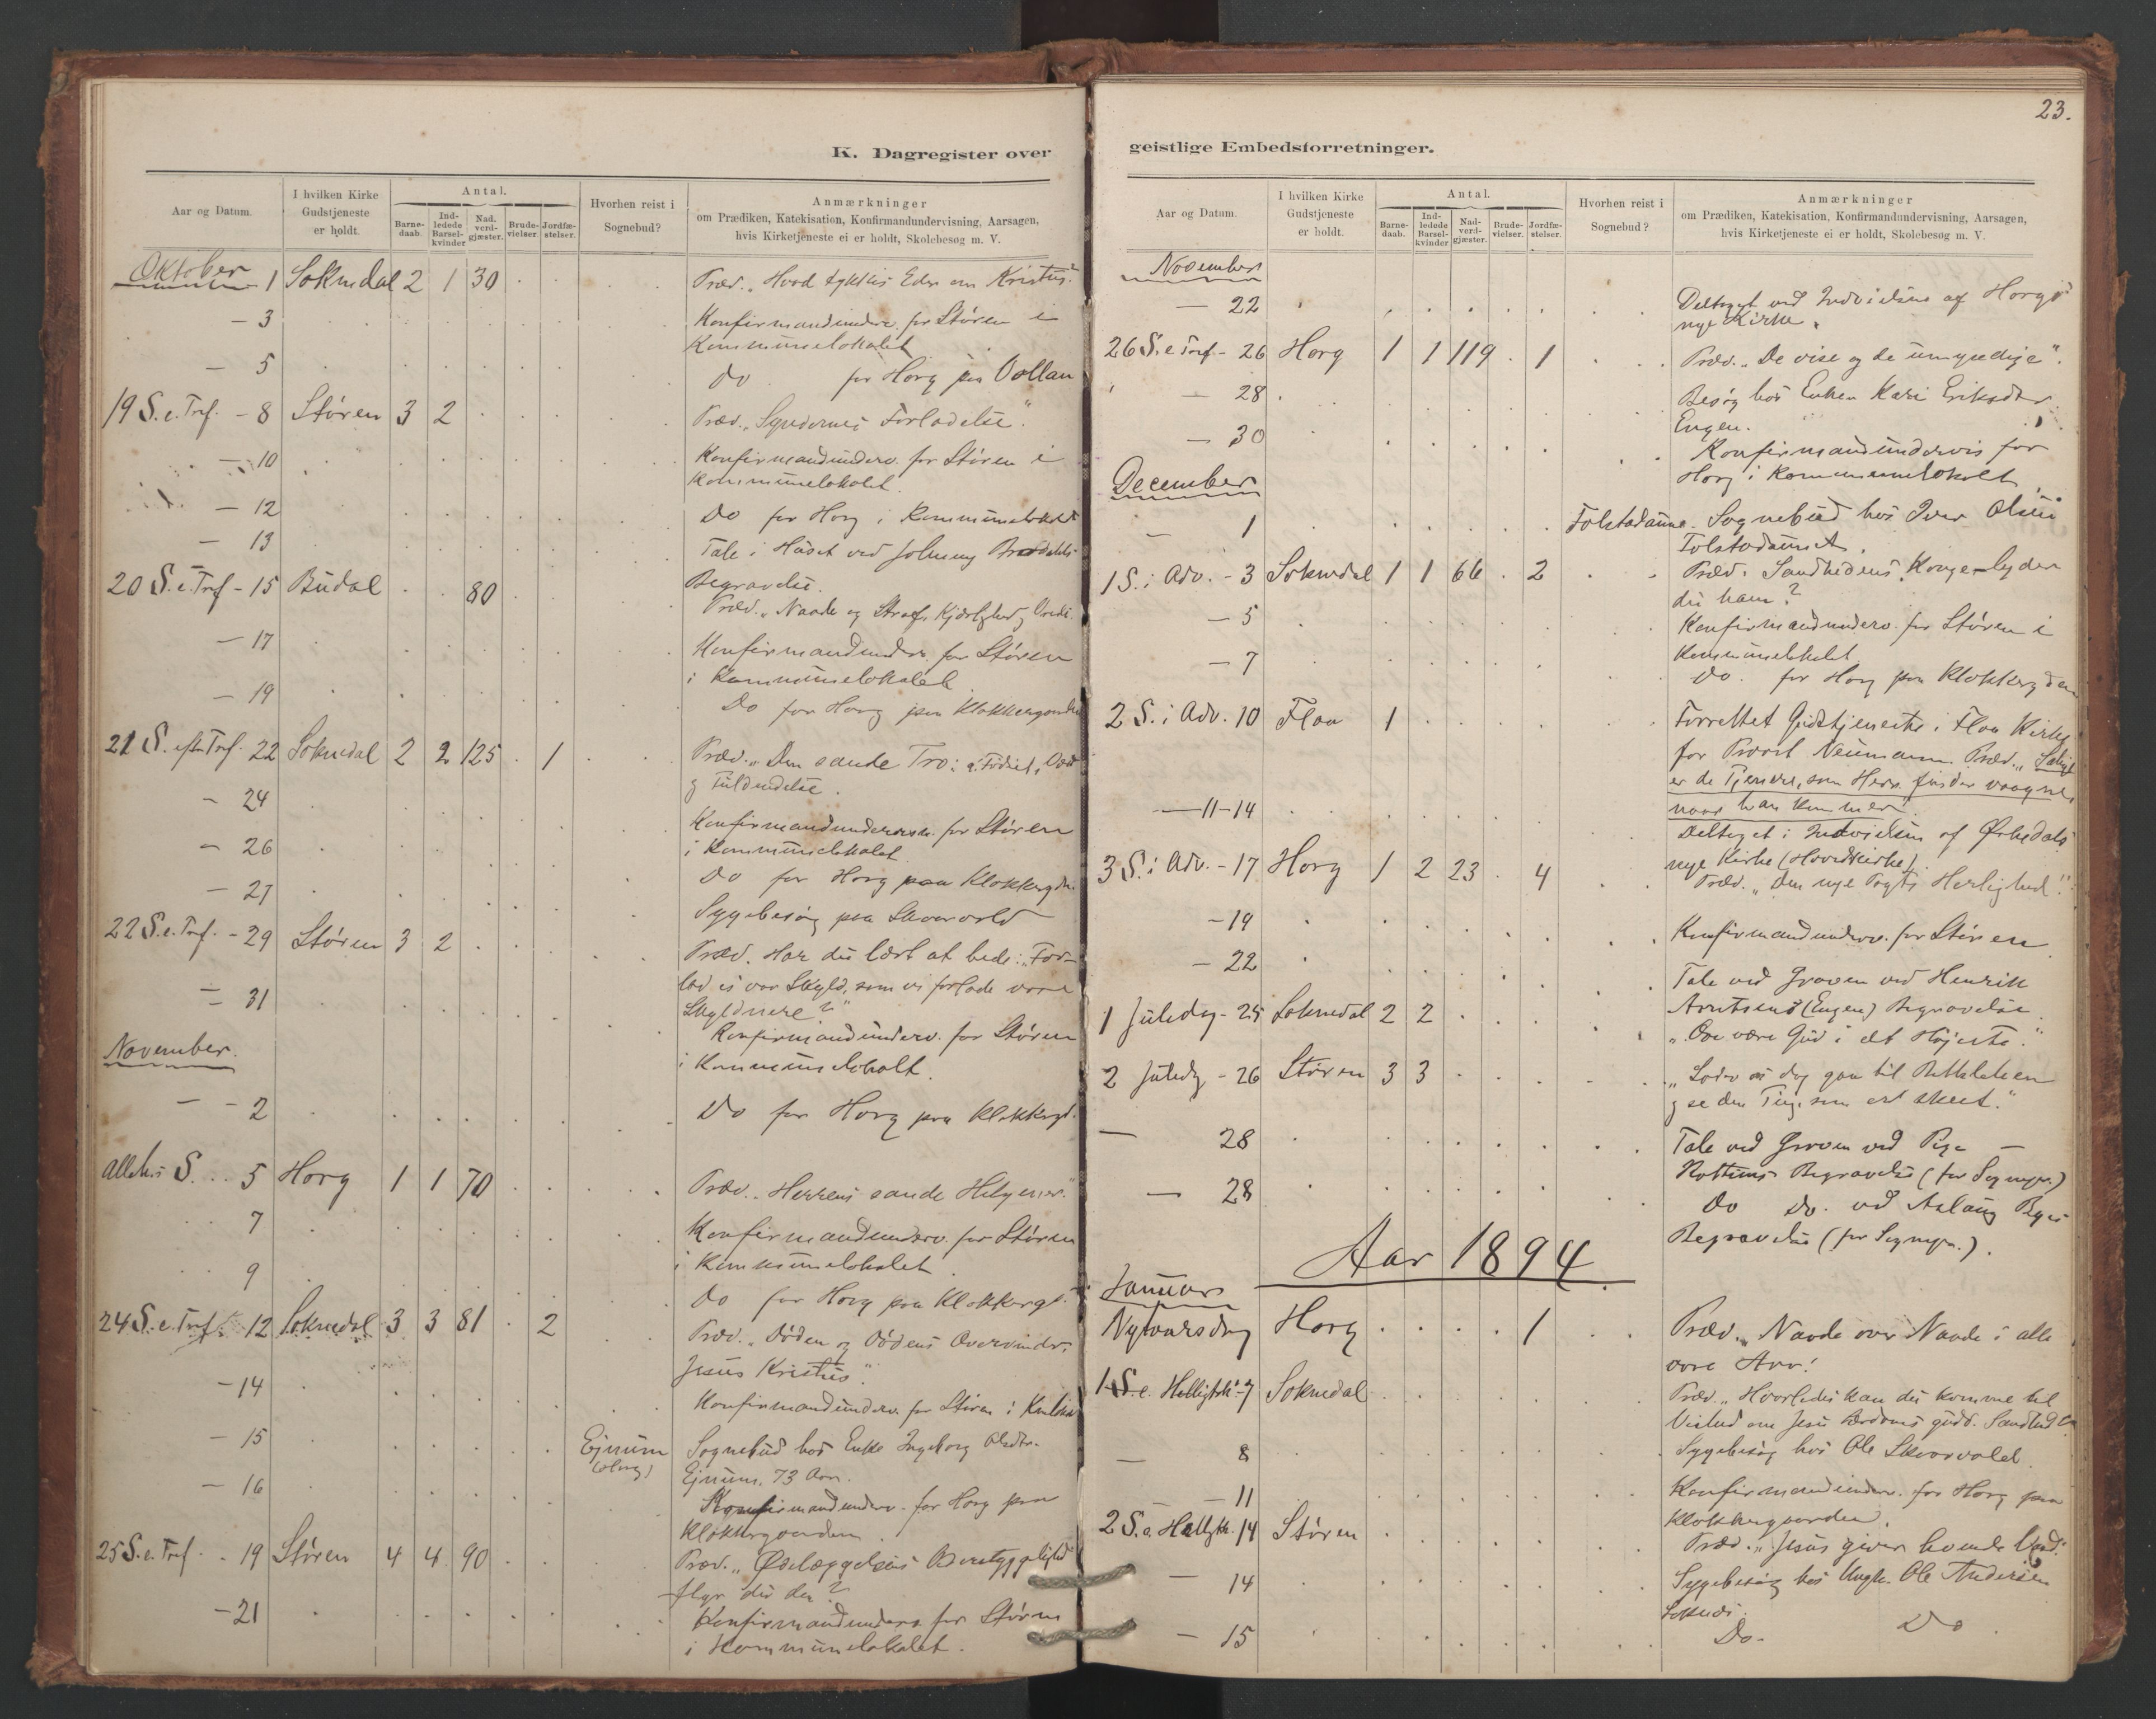 K. Dagregister over
Aar og Datum.
I hvilken Kirke Gudstjeneste er holdt.
Antal.
Barne-daab.
Ind-ledede Barsel-kvinder
Nad-verd-gjæster.
Brude-vielser.
Jordfæ-stelser.
Hvorhen reist i Sognebud?
Anmærkninger
om Prædiken, Katekisation, Konfirmandundervisning, Aarsagen,
hvis Kirketjeneste ei er holdt, Skolebesøg m. V.
Oktober 1 Soknedal 2 1 30 Præd. "Hvad tykkes Eder om Kristus?"
- 3 Konfirmandunderv. for Støren i
Kommunelokalet
- 5 Do for Horg paa Vollan
19 S. e. Tref. - 8 Støren 3 2 Præd. "Syndernes Forladelse".
- 10 Konfirmandunderv. for Støren i
Kommunelokalet.
- 12 Do for Horg i Kommunelokalet
- 13 Tale i Huset ved
Begravelse.
20 S. e. Tref - 15 Budal 80 Præd. "Naade og Straf, Kjærlighed og Vrede.
- 17 Konfirmandunderv. for Støren
i Kommunelokalet
- 19 Do for Horg paa Klokkergaarden
21 S. efter Tref. 22 Soknedal 2 2 125 1 Præd. "Den sande Tro: Fødsel, Vext
og Fuldendelse.
- 24 Konfirmandunderv. for Støren
i Kommunelokalet
- 26 Do for Horg paa Klokkergdn.
- 27 Sygebesøg paa Skaarvold
22 S. e. Tref. - 29 Støren 3 2 Præd. Har du lært at bede: "For-
lad os vor Skyld, som vi forlade vore
Skyldnere?"
- 31 Konfirmandunderv. for Støren
i Kommunelokalt.
November.
- - 2 Do for Horg paa Klokkergd.
Alleh. S. 5 Horg 1 1 70 Præd. "Herrens sande Helgener."
7 Konfirmandunderv. for Støren
i Kommunelokalet
9 Do for Horg paa Klokkergd.
24 S. e. Tref. 12 Soknedal 3 3 81 2 Præd. "Døden og Dødens Overvinder,
Jesus Kristus".
- 14 Konfirmandunderv. for Støren i
- 15 Ejnum (Horg) Sognebud hos Enke Ingeborg Olsdtr.
Ejnum, 73 Aar.
- 16 Konfirmandunderv. for Horg paa
Klokkergaarden.
25 S. e. Tref. - 19 Støren 4 4 90 Præd. "Ødelæggelsens Vederstyggelighed
flyr du den?
- 21 Konfirmandunderv. for Støren
i Kommunelokalet.
23.
geistlige Embedsforretninger.
Aar og Datum.
I hvilken Kirke Gudstjeneste er holdt.
Antal.
Barne-daab.
Ind-ledede Barsel-kvinder
Nad-verd-gjæster.
Brude-vielser.
Jordfæ-stelser.
Hvorhen reist i Sognebud?
Anmærkninger
om Prædiken, Katekisation, Konfirmandundervisning, Aarsagen,
hvis Kirketjeneste ei er holdt, Skolebesøg m. V.
November
- 22 Deltaget ved Indvielsen af Horgs
nye Kirke.
26 S. e Tref - 26 Horg 1 1 119 1 Præd. "De vise og de umyndige".
- 28 Besøg hos Enken Kari Eriksdtr
Engen.
- 30 Konfirmandundervis for
Horg i Kommunelokalet
December
- 1 Folstadaune Sognebud hos Iver Olsen
Folstadaunet.
1 S. i Adv. - 3 Soknedal 1 1 66 2 Præd. Sandhedens Konge - lyder
du ham?
- 5 Konfirmandunderv. for Støren i
Kommunelokalet
- 7 Do. for Horg paa Klokkergden
2 S. i Adv. 10 Flaa 1 Forrettet Gudstjeneste i Flaa Kirke
for Provst Neumann. Præd. "Salige
er de Tjenere, som Herren finder vaagne,
naar han kommer"
- 11-14 Deltaget i Indvielsen af Ørkedals
nye Kirke (Hovedkirke).
3 S. i Adv. - 17 Horg 1 2 23 4 Præd. "Den nye Pagts Herlighed".
- 19 Konfirmandunderv. for Støren
- 22 Tale ved Graven ved Henrik
Arntsens (Engen) Begravelse
1 Juledag - 25 Soknedal 2 2 "Ære være Gud i det Højeste."
2 Juledg - 26 Støren 3 3 "Lader os dog gaa til Bethlehem
og se den Ting, som er skeet."
- 28 Tale ved Graven ved
Begravelse (for Sognepr.)
- 28 Do Do. ved Aslaug
Begravelse (for Sognepr.).
Aar 1894.
Januar
Nytaarsdag Horg 1 Præd. "Naade over Naade i alle
vore Aar!
1 S. e. Helligtrek. - 7 Soknedal Præd. "Hvorledes kan du komme til
Vished om Jesu Lærdoms gudd. Sandhed?
- 8 Sygebesøg hos Ole Skaarvold
- 11 Konfirmandunderv. for Horg paa
Klokkergaarden.
2 S. e. Helligtk. 14 Støren Præd. "Jesus giver levende Vand."
- 14 Sygebesøg hos Ungk. Ole Andersen
- 15 Do - Do